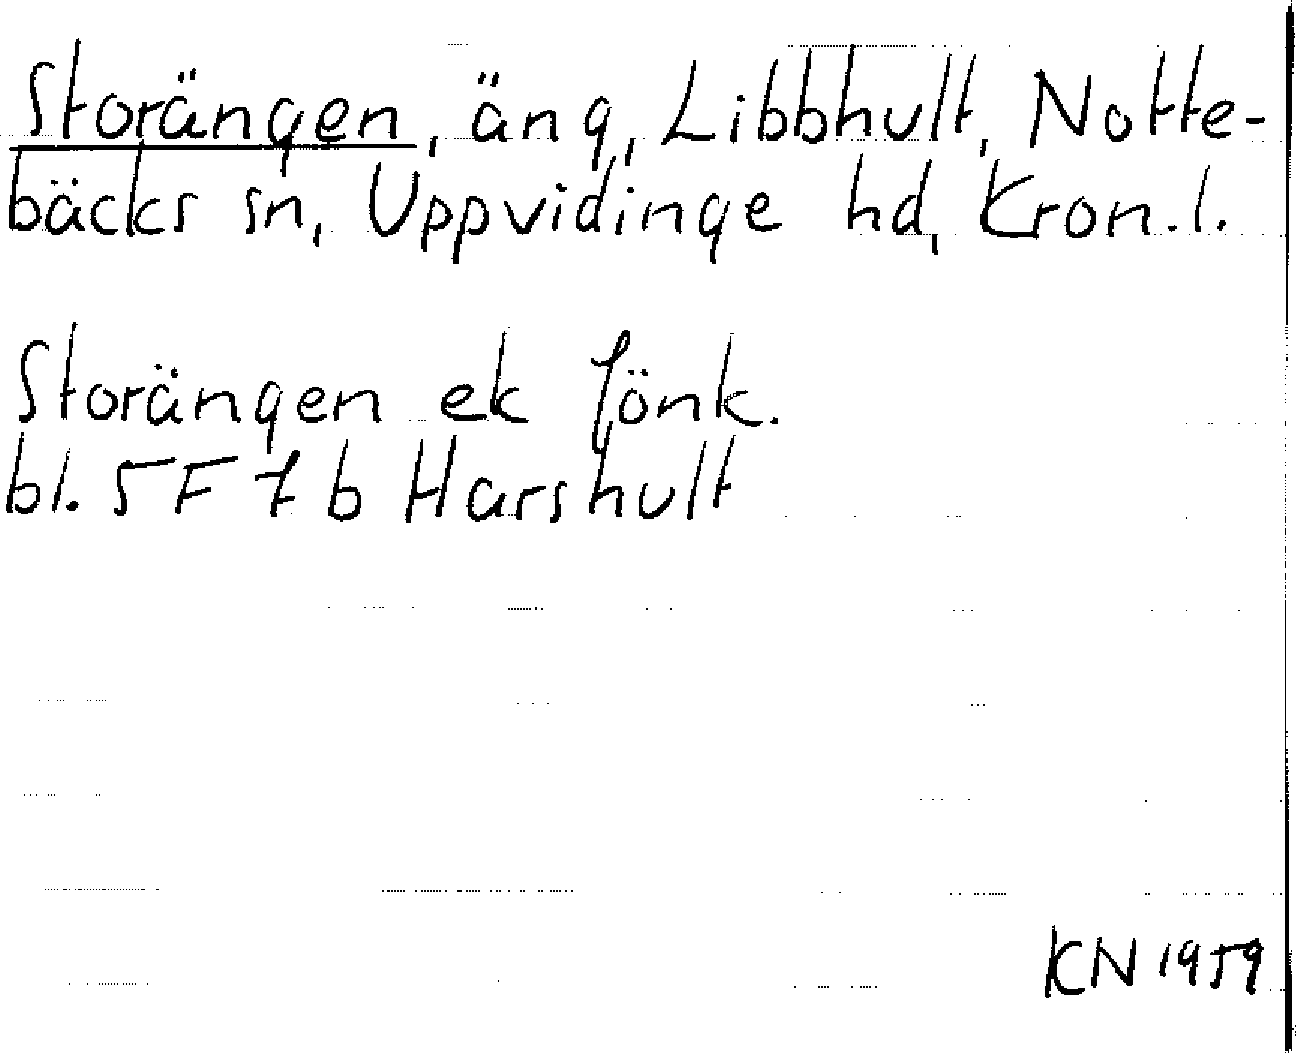 Storängen, äng, Libbhult, Notte-
bäcks sn, Uppvidinge hd, Kron.l.
Storängen ek Jönk.
bl. 5F7b Harshult
KN 1959